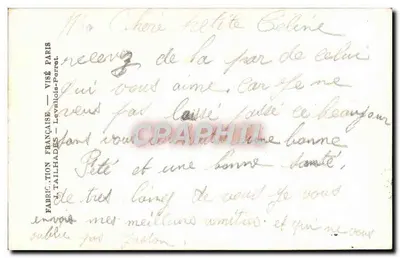 Ma Chère petite Céline
recevez de la par de celui
qui vous aime. car je ne
veus pas laissé passé ce beau jour
sans vous une bonne
Fété et une bonne santé.
de tres loing de vous Je vous
envois mes meilleure amitiés et qui ne vous
oublie pas
FABRICATION FRANÇAISE — VISÉ PARIS
TAILHADES — Levallois-Perret
CPARAMA